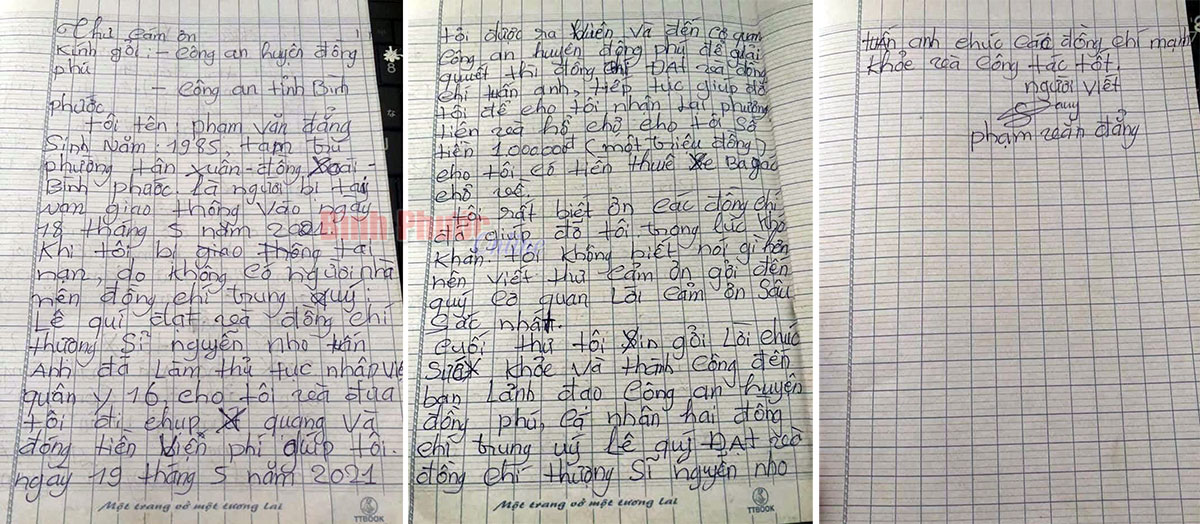 Thư cảm ơn
Kính gởi: - Công an huyện đồng
phú
- Công an tỉnh Bình
phước
tôi tên: phạm văn đẳng
Sinh Năm: 1985, tạm trú
phường tân xuân - đồng Xoài -
Bình phước. là người bị tai
nạn giao thông vào ngày
18 tháng 5 năm 2021.
Khi tôi bị giao thông tai
nạn, do không có người nhà
nên đồng chí trung quý:
Lê quí đạt và đồng chí
thượng Sĩ nguyễn nho tuấn
Anh đã Làm thủ tục nhập viện
quân y 16, cho tôi và đưa
tôi đi chụp X quang và
đóng tiền viện phí giúp tôi.
ngày 19 tháng 5 năm 2021
Một trang vở một tương lai
TTBOOK
tôi được ra viện và đến cơ quan
Công an huyện đồng phú để giải
quyết thì đồng chí ĐẠt và đồng
chí tuấn anh, tiếp tục giúp đỡ
tôi để cho tôi nhận Lại phương
tiện và hổ chợ cho tôi Số
tiền 1.000.000đ (một triệu đồng)
cho tôi có tiền thuê Xe Bagac
chở về.
tôi rất biết ơn các đồng chí
đã giúp đỡ tôi trong lúc khó
khăn tôi không biết nói gì hơn
nên viết thư cảm ơn gởi đến
quý cơ quan Lời cảm ơn Sâu
Sắc nhất.
Cuối thư tôi Xin gởi Lời chúc
Sức khỏe và thành công đến
ban Lảnh đạo Công an huyện
đồng phú, cá nhân hai đồng
chí trung uý Lê quý ĐẠt và
đồng chí thượng Sĩ nguyễn nho
Một trang vở một tương lai
TTBOOK
tuấn anh chúc các đồng chí mạnh
khỏe và công tác tốt.
người viết
phạm văn đẳng
Bình Phước
Online